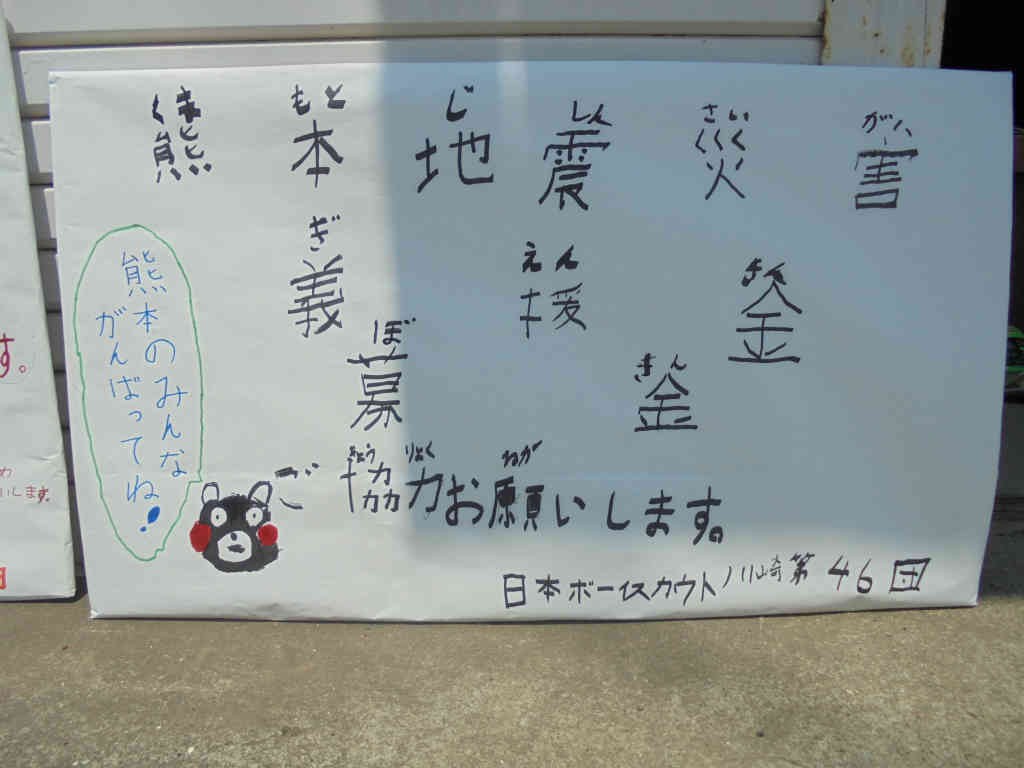 くま もと じ しん さい がい
熊本地震災害
ぎ えん きん
義援金
ぼ きん
募金
きょう りょく ねが
ご協力お願いします。
日本ボーイスカウト川崎第46団
熊本のみんな
がんばってね!
す。
います。